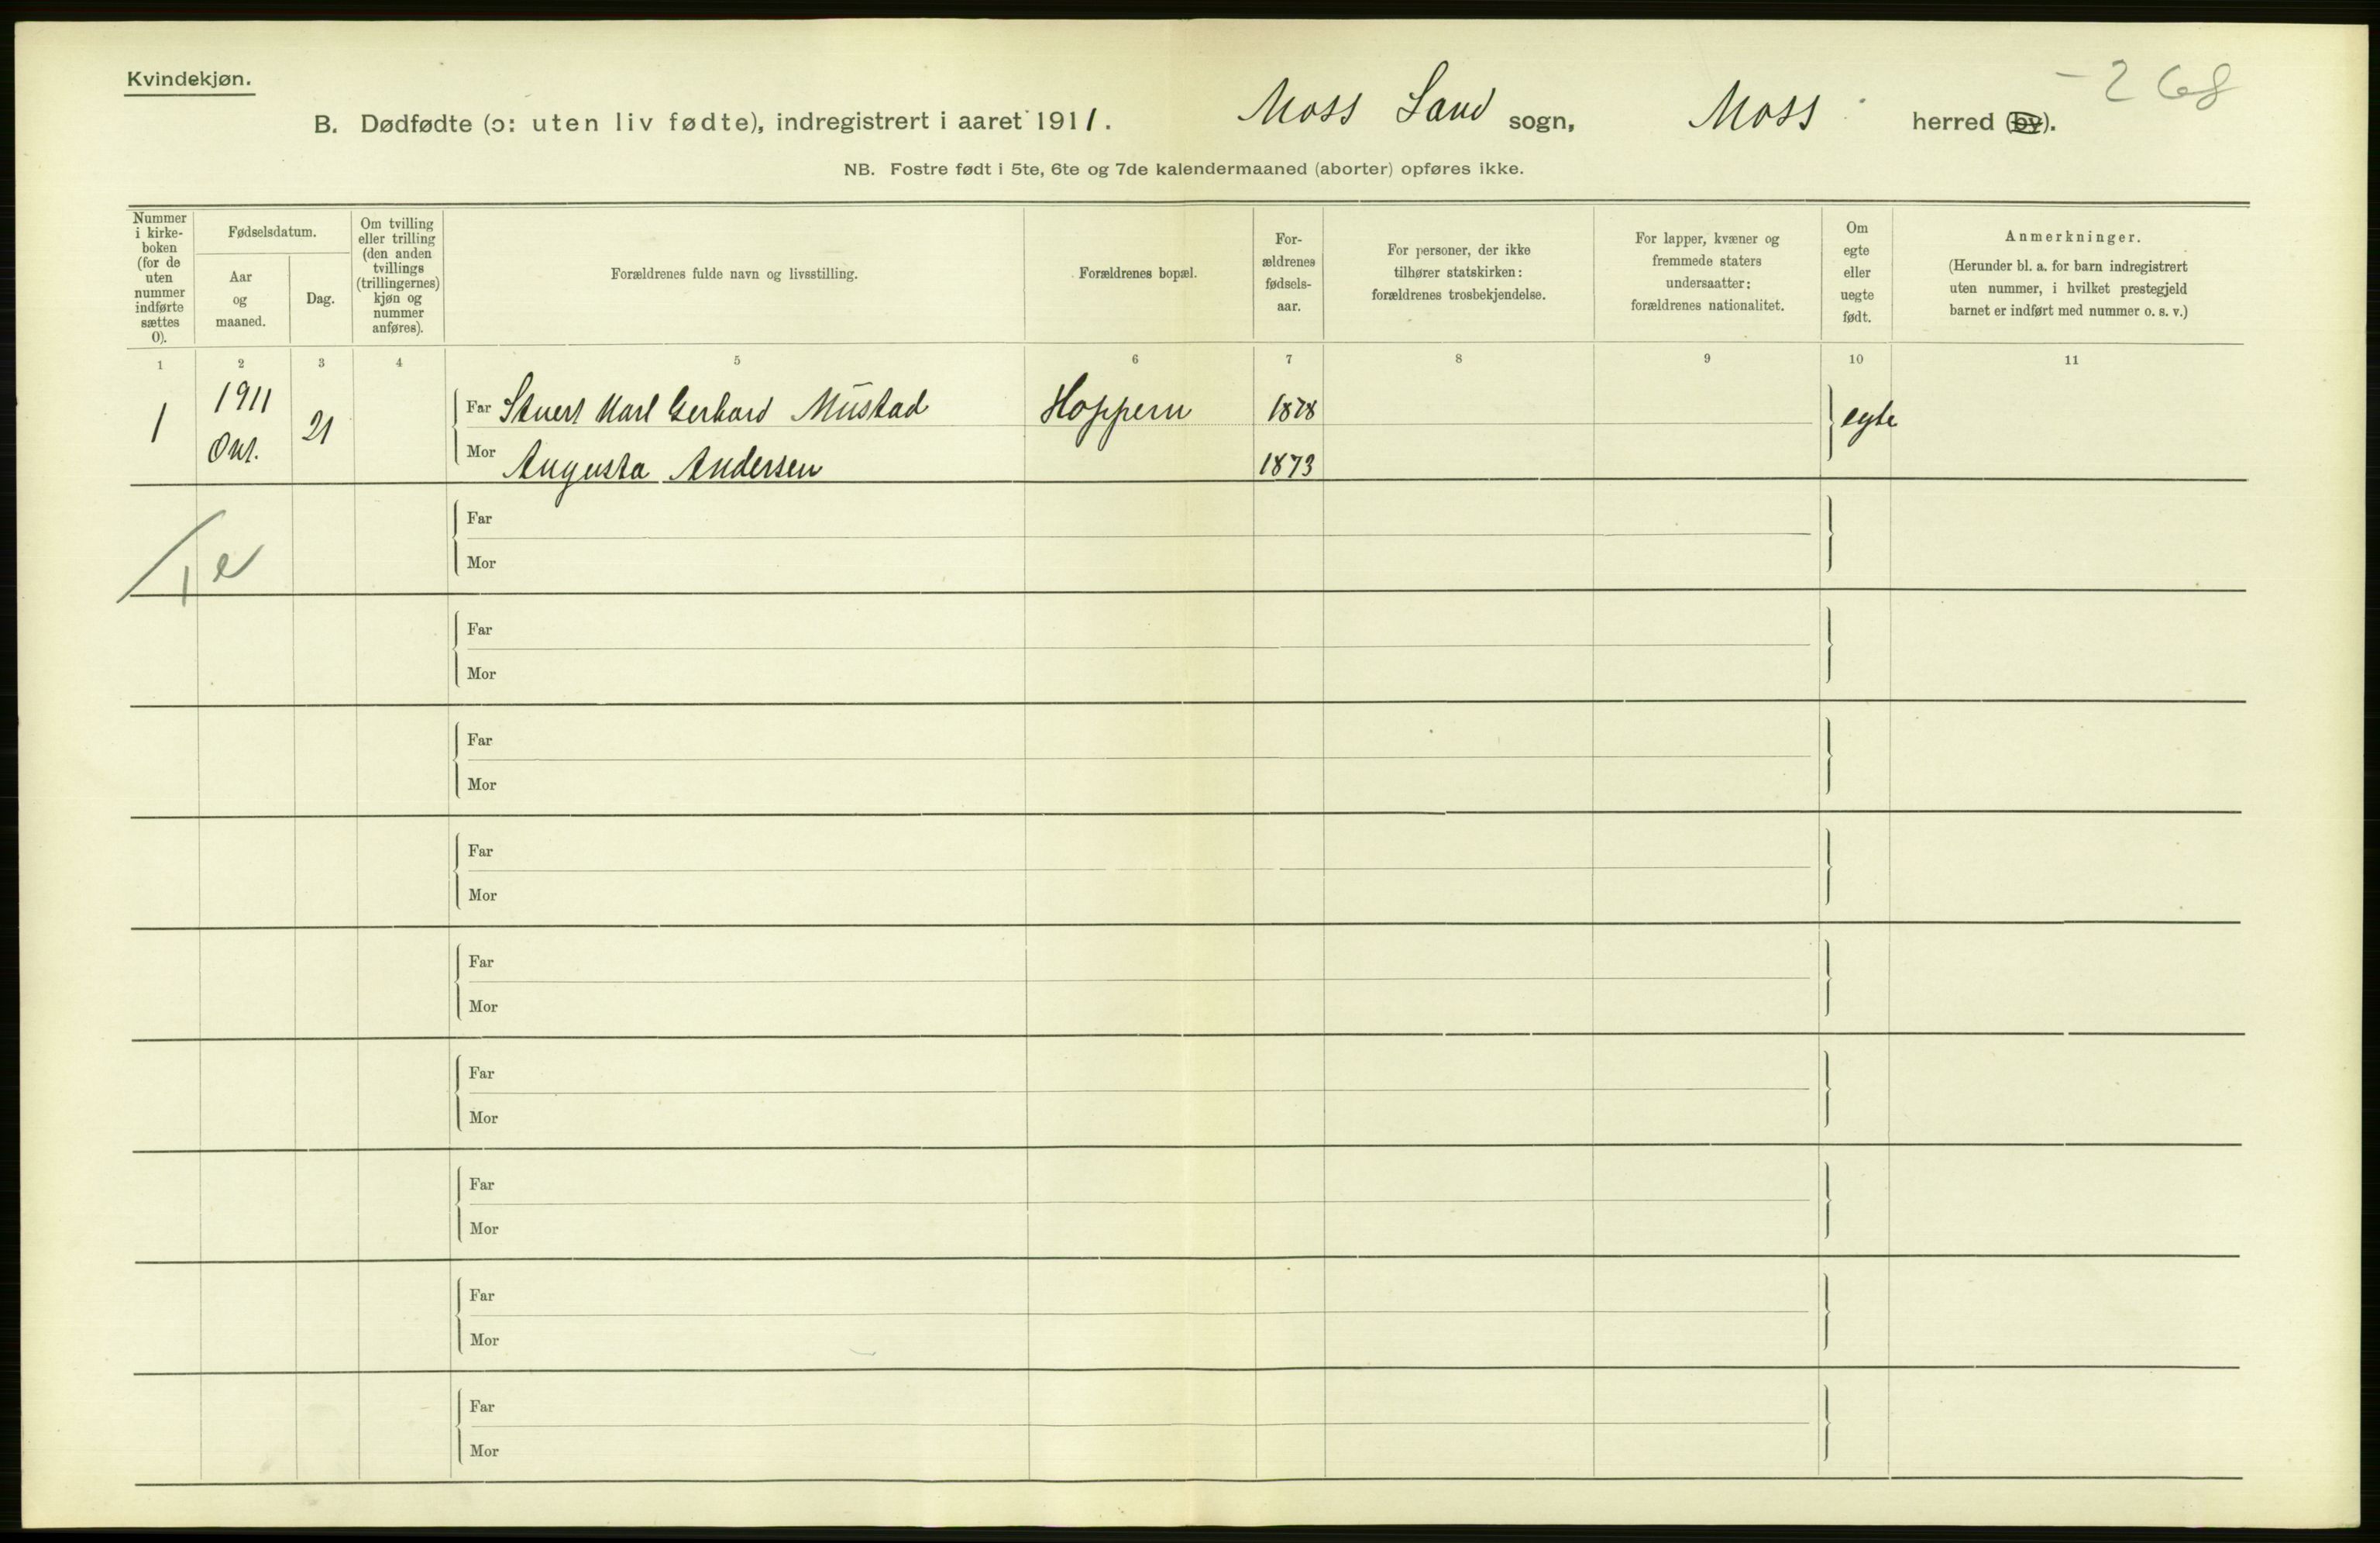 Kvindekjøn.
- 268
B. Dødfødte (ɔ: uten liv fødte), indregistrert i aaret 1911. Moss Land sogn, Moss herred (by).
NB. Fostre født i 5te, 6te og 7de kalendermaaned (aborter) opføres ikke.
Nummer i kirke-boken (for de uten nummer indførte sættes 0).
Fødselsdatum.
Aar og maaned.
Dag.
Om tvilling eller trilling (den anden tvillings (trillingernes) kjøn og nummer anføres).
Forældrenes fulde navn og livsstilling.
Forældrenes bopæl.
For-ældrenes fødsels-aar.
For personer, der ikke tilhører statskirken: forældrenes trosbekjendelse.
For lapper, kvæner og fremmede staters undersaatter: forældrenes nationalitet.
Om egte eller uegte født.
Anmerkninger.
(Herunder bl. a. for barn indregistrert uten nummer, i hvilket prestegjeld barnet er indført med nummer o. s. v.)
1 2 3 4 5 6 7 8 9 10 11
1 1911 Okt. 21 Far Stuert Karl Gerhard Mustad Hoppern 1878 egte
Mor Augusta Andersen 1873
Far
1 e
Mor
Far
Mor
Far
Mor
Far
Mor
Far
Mor
Far
Mor
Far
Mor
Far
Mor
Far
Mor